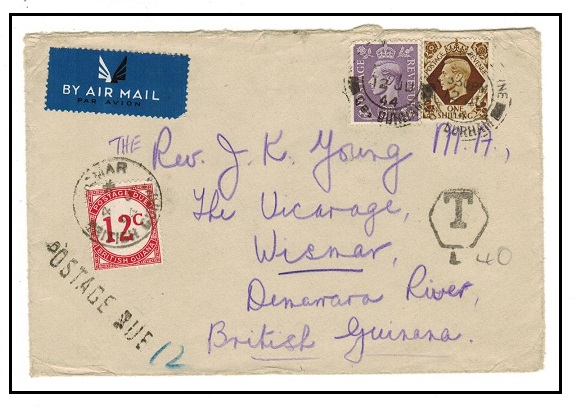 BY AIR MAIL
PAR AVION
POSTAGE REVENUE
POSTAGE REVENUE
ONE SHILLING
44
DURHAM
DURHAM
THE Rev. J. K. Young M.A.,
The Vicarage,
Wismar,
Demarara River,
British Guinana.
T
L 40
POSTAGE DUE
12c
BRITISH GUIANA
POSTAGE DUE
12